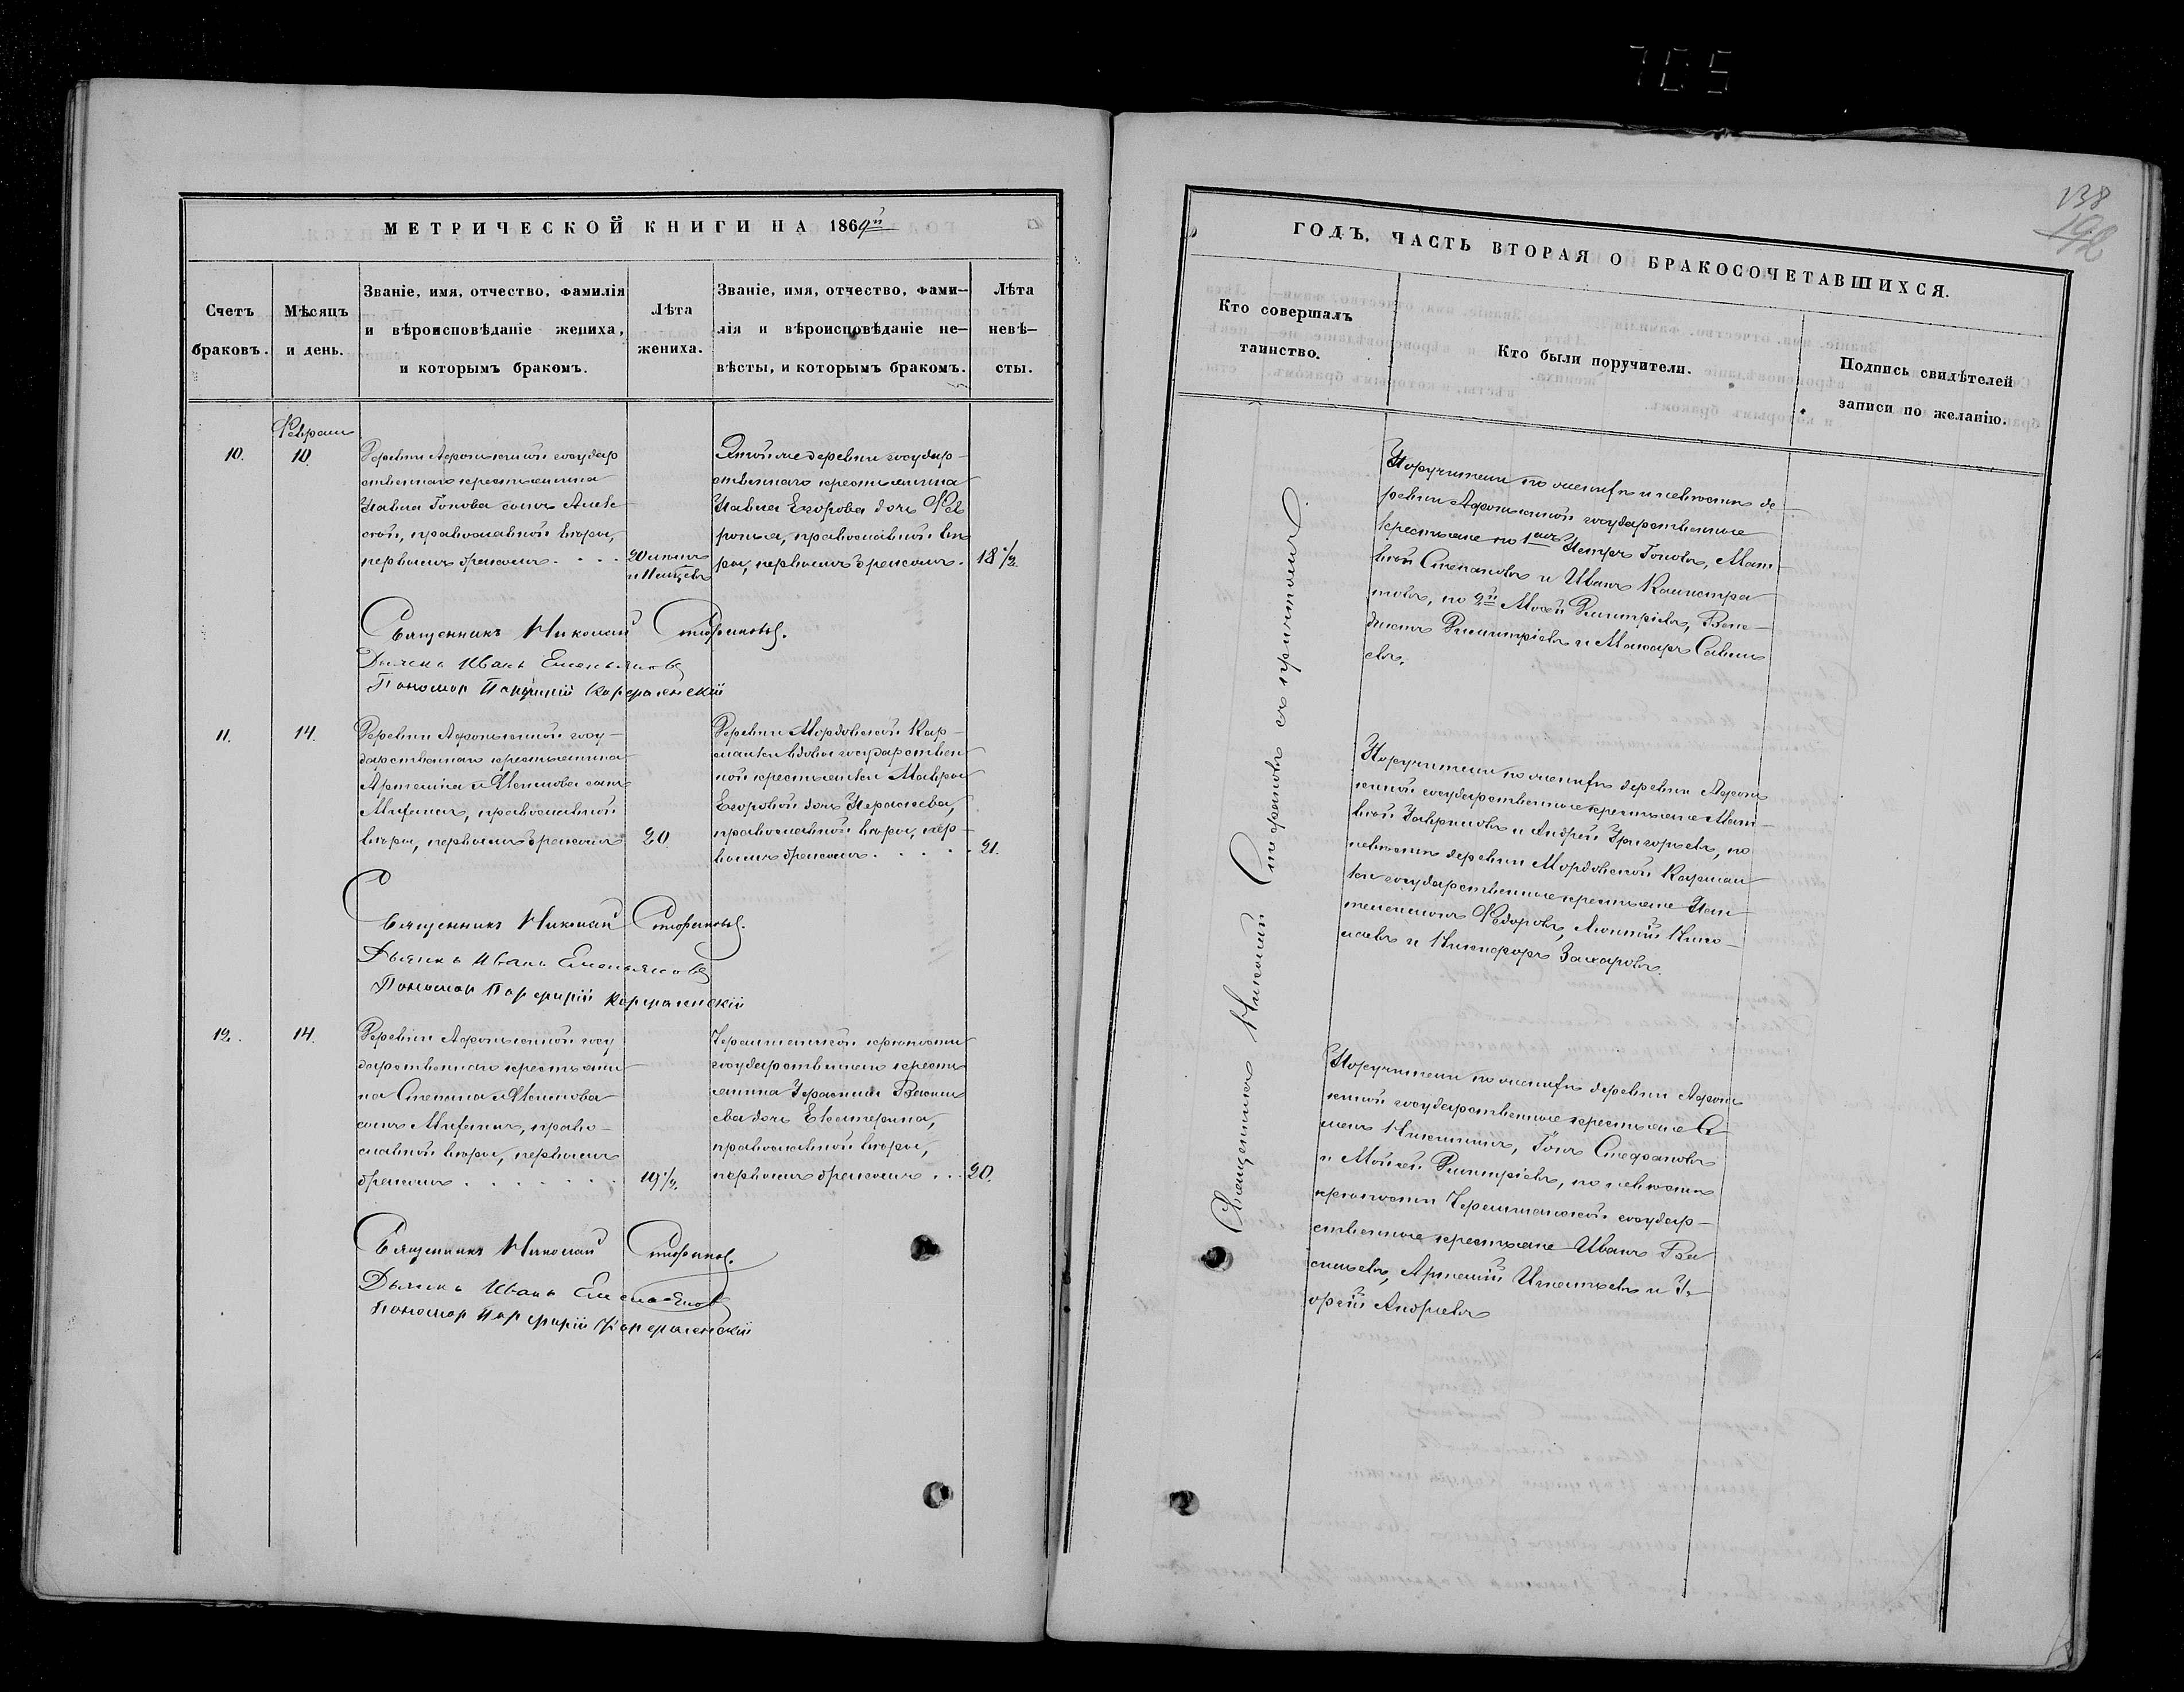 705
138
192
МЕТРИЧЕСКОЙ КНИГИ НА 1869й
Счетъ
браковъ.
Мѣсяцъ
и день.
Званіе, имя, отчество, фамилія
и вѣроисповѣданіе жениха,
и которымъ бракомъ.
Лѣта
жениха.
Званіе, имя, отчество, фами-
лія и вѣроисповѣданіе не-
вѣсты, и которымъ бракомъ.
Лѣта
невѣ-
сты.
Февраля
10.
10.
Деревни Афонькиной государ
ственнаго крестьянина
Павла Іонова сынъ Алексѣ
, православной вѣры,
первымъ бракомъ
20
Этой же деревни государ-
ственнаго крестьянина
Павла Егорова дочь Фев
ронья, православной вѣ
ры, первымъ бракомъ.
18 ½
Священникъ Николай Стефановъ.
Дьячекъ Иванъ Емельяновъ
Пономарь Порфирій
11.
14.
Деревни Афонькиной госу-
дарственнаго крестьянина
сынъ
, православной
вѣры, первымъ бракомъ
20.
Деревни Мордовской Кар-
малки вдовы государствен
ной крестьянки Мавры
Егоровой дочь Параскева,
православной вѣры, пер-
вымъ бракомъ
21.
Священникъ Николай Стефановъ.
Дьячекъ Иванъ Емельяновъ
Пономарь Порфирій
12.
14.
Деревни Афонькиной госу
дарственнаго крестьяни
на Степана
сынъ , право-
славной вѣры, первымъ
бракомъ
19 ½.
Черемшанской крѣпости
государственнаго кресть
янина Герасима Василь
ева дочь Екатерина,
православной вѣры,
первымъ бракомъ
20.
Священникъ Николай Стефановъ.
Дьячекъ Иванъ Емельяновъ
Пономарь Порфирій
ГОДЪ. ЧАСТЬ ВТОРАЯ О БРАКОСОЧЕТАВШИХСЯ.
Кто совершалъ
таинство.
Кто были поручители.
Подпись свидѣтелей
записи по желанію.
Священникъ Николай Стефановъ съ причтомъ
Поручители по женихѣ и невѣстѣ де
ревни Афонькиной государственные
крестьяне по 1мъ Петръ Іоновъ, Мат-
вѣй Степановъ и Иванъ Каллистра
товъ, по 2й Димитріевъ, Вене-
диктъ Димитріевъ и Макаръ Савель
евъ.
Поручители по женихѣ деревни Афонь
киной государственные крестьяне Мат-
вѣй Гавриловъ и Андрей Григорьевъ, по
невѣстѣ деревни Мордовской Кармал
ки государственные крестьяне Пан-
телеимонъ Ѳедоровъ, Нико-
лаевъ и Никифоръ Захаровъ.
Поручители по женихѣ деревни Афонь
киной государственные крестьяне Се
менъ Никитинъ, Іонъ Стефановъ
и Моисей Димитріевъ, по невѣстѣ
крѣпости Черемшанской государ-
ственные крестьяне Иванъ Ва
сильевъ, Артемій Игнатьевъ и Ге
оргій Андреевъ